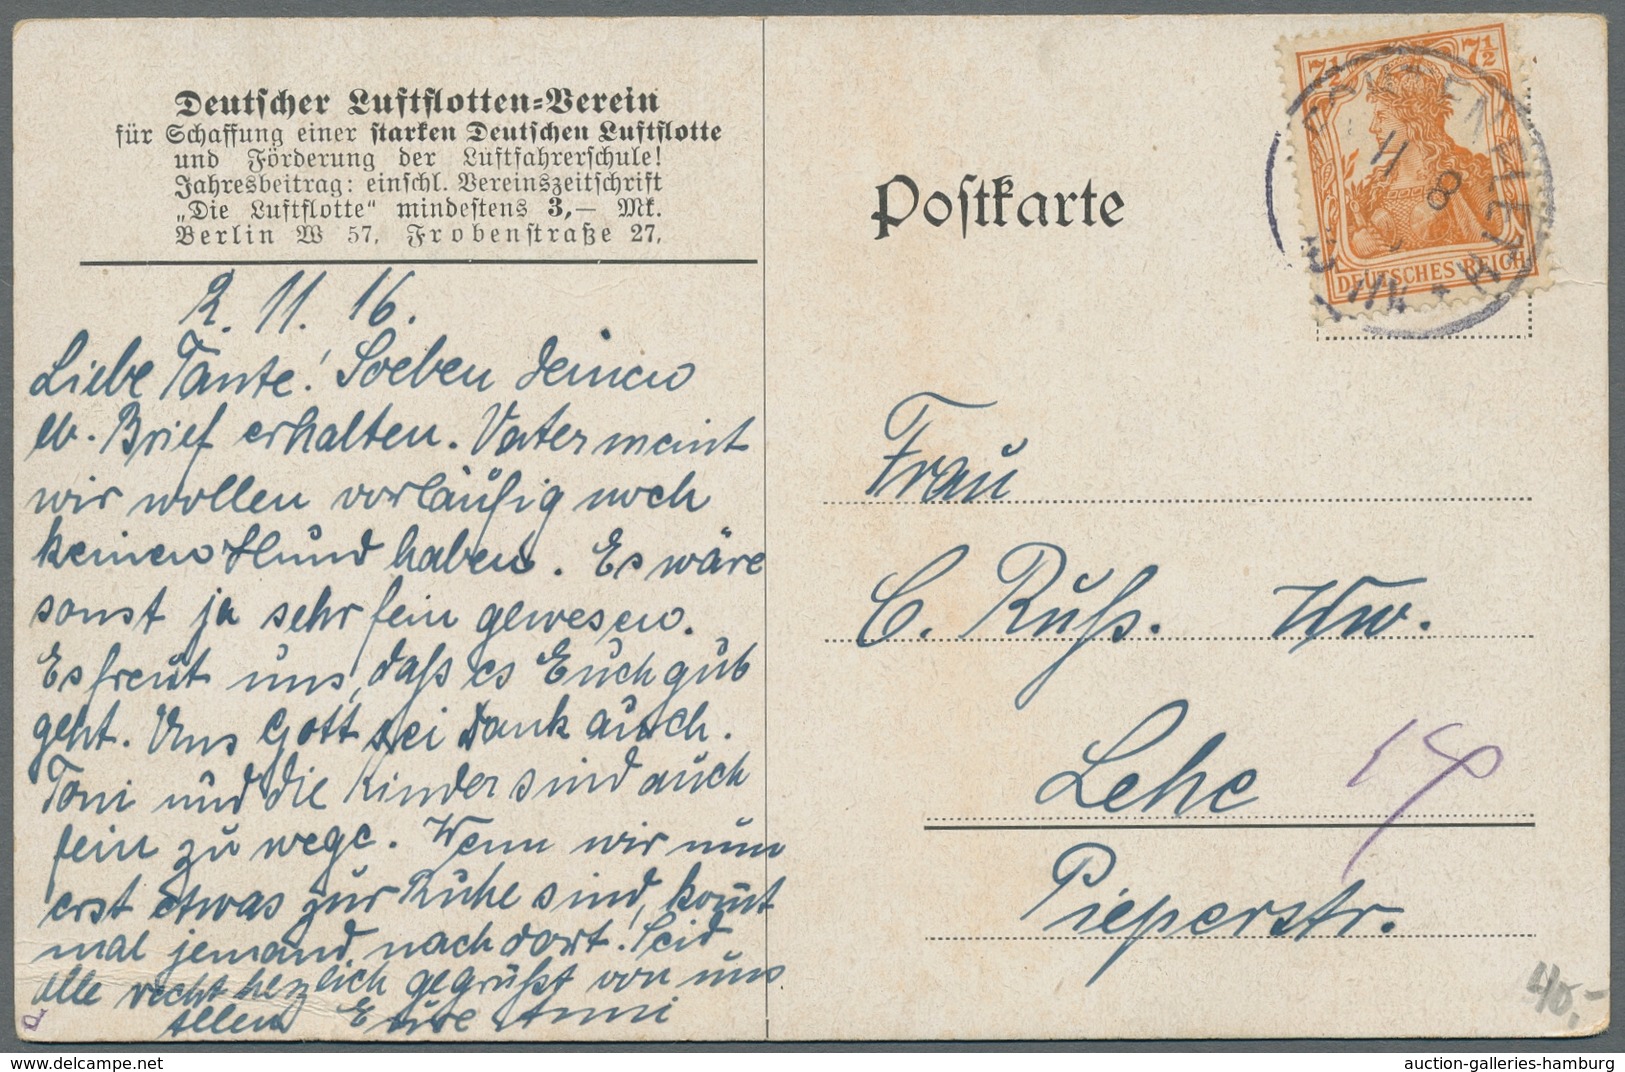 Deutscher Luftflotten=Verein
für Schaffung einer starken Deutschen Luftflotte
und Förderung der Luftfahrerschule!
Jahresbeitrag: einschl. Vereinszeitschrift
„Die Luftflotte“ mindestens 3,— Mk.
Berlin W 57, Frobenstraße 27,
2. 11. 16.
Liebe Tante! Soeben deinen
lb. Brief erhalten. Vater meint
wir wollen vorläufig noch
keinen Hund haben. Es wäre
sonst ja sehr fein gewesen.
Es freut uns, daß es Euch gut
geht. Uns Gott sei Dank auch.
Toni und die Kinder sind auch
fein zu wege. Wenn wir nun
erst etwas zur Ruhe sind, kom̄t
mal jemand nach dort! Seid
alle recht herzlich gegrüßt von uns
allen Eure Anni
Postkarte
7½ 7½
DEUTSCHES REICH
11
8
Frau
C. Ruß. Ww.
Lehe
Pieperstr.
40,-
auction-galleries-hamburg